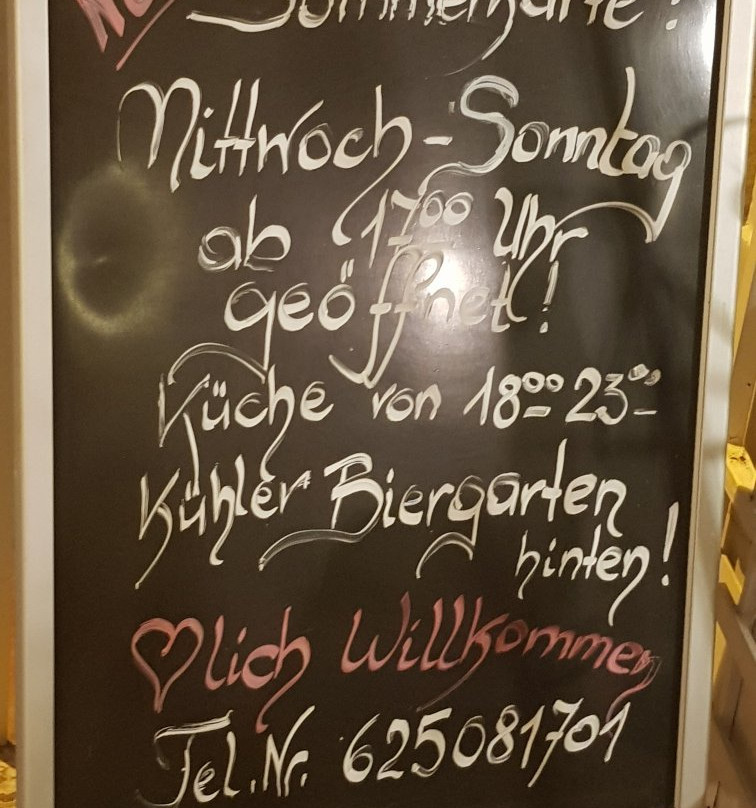 Sommerkarte!
Mittwoch - Sonntag
ab 17⁰⁰ Uhr
geöffnet!
Küche von 18⁰⁰ 23⁰⁰
Kühler Biergarten
hinten!
♡lich Willkommen
Tel. Nr. 625081701